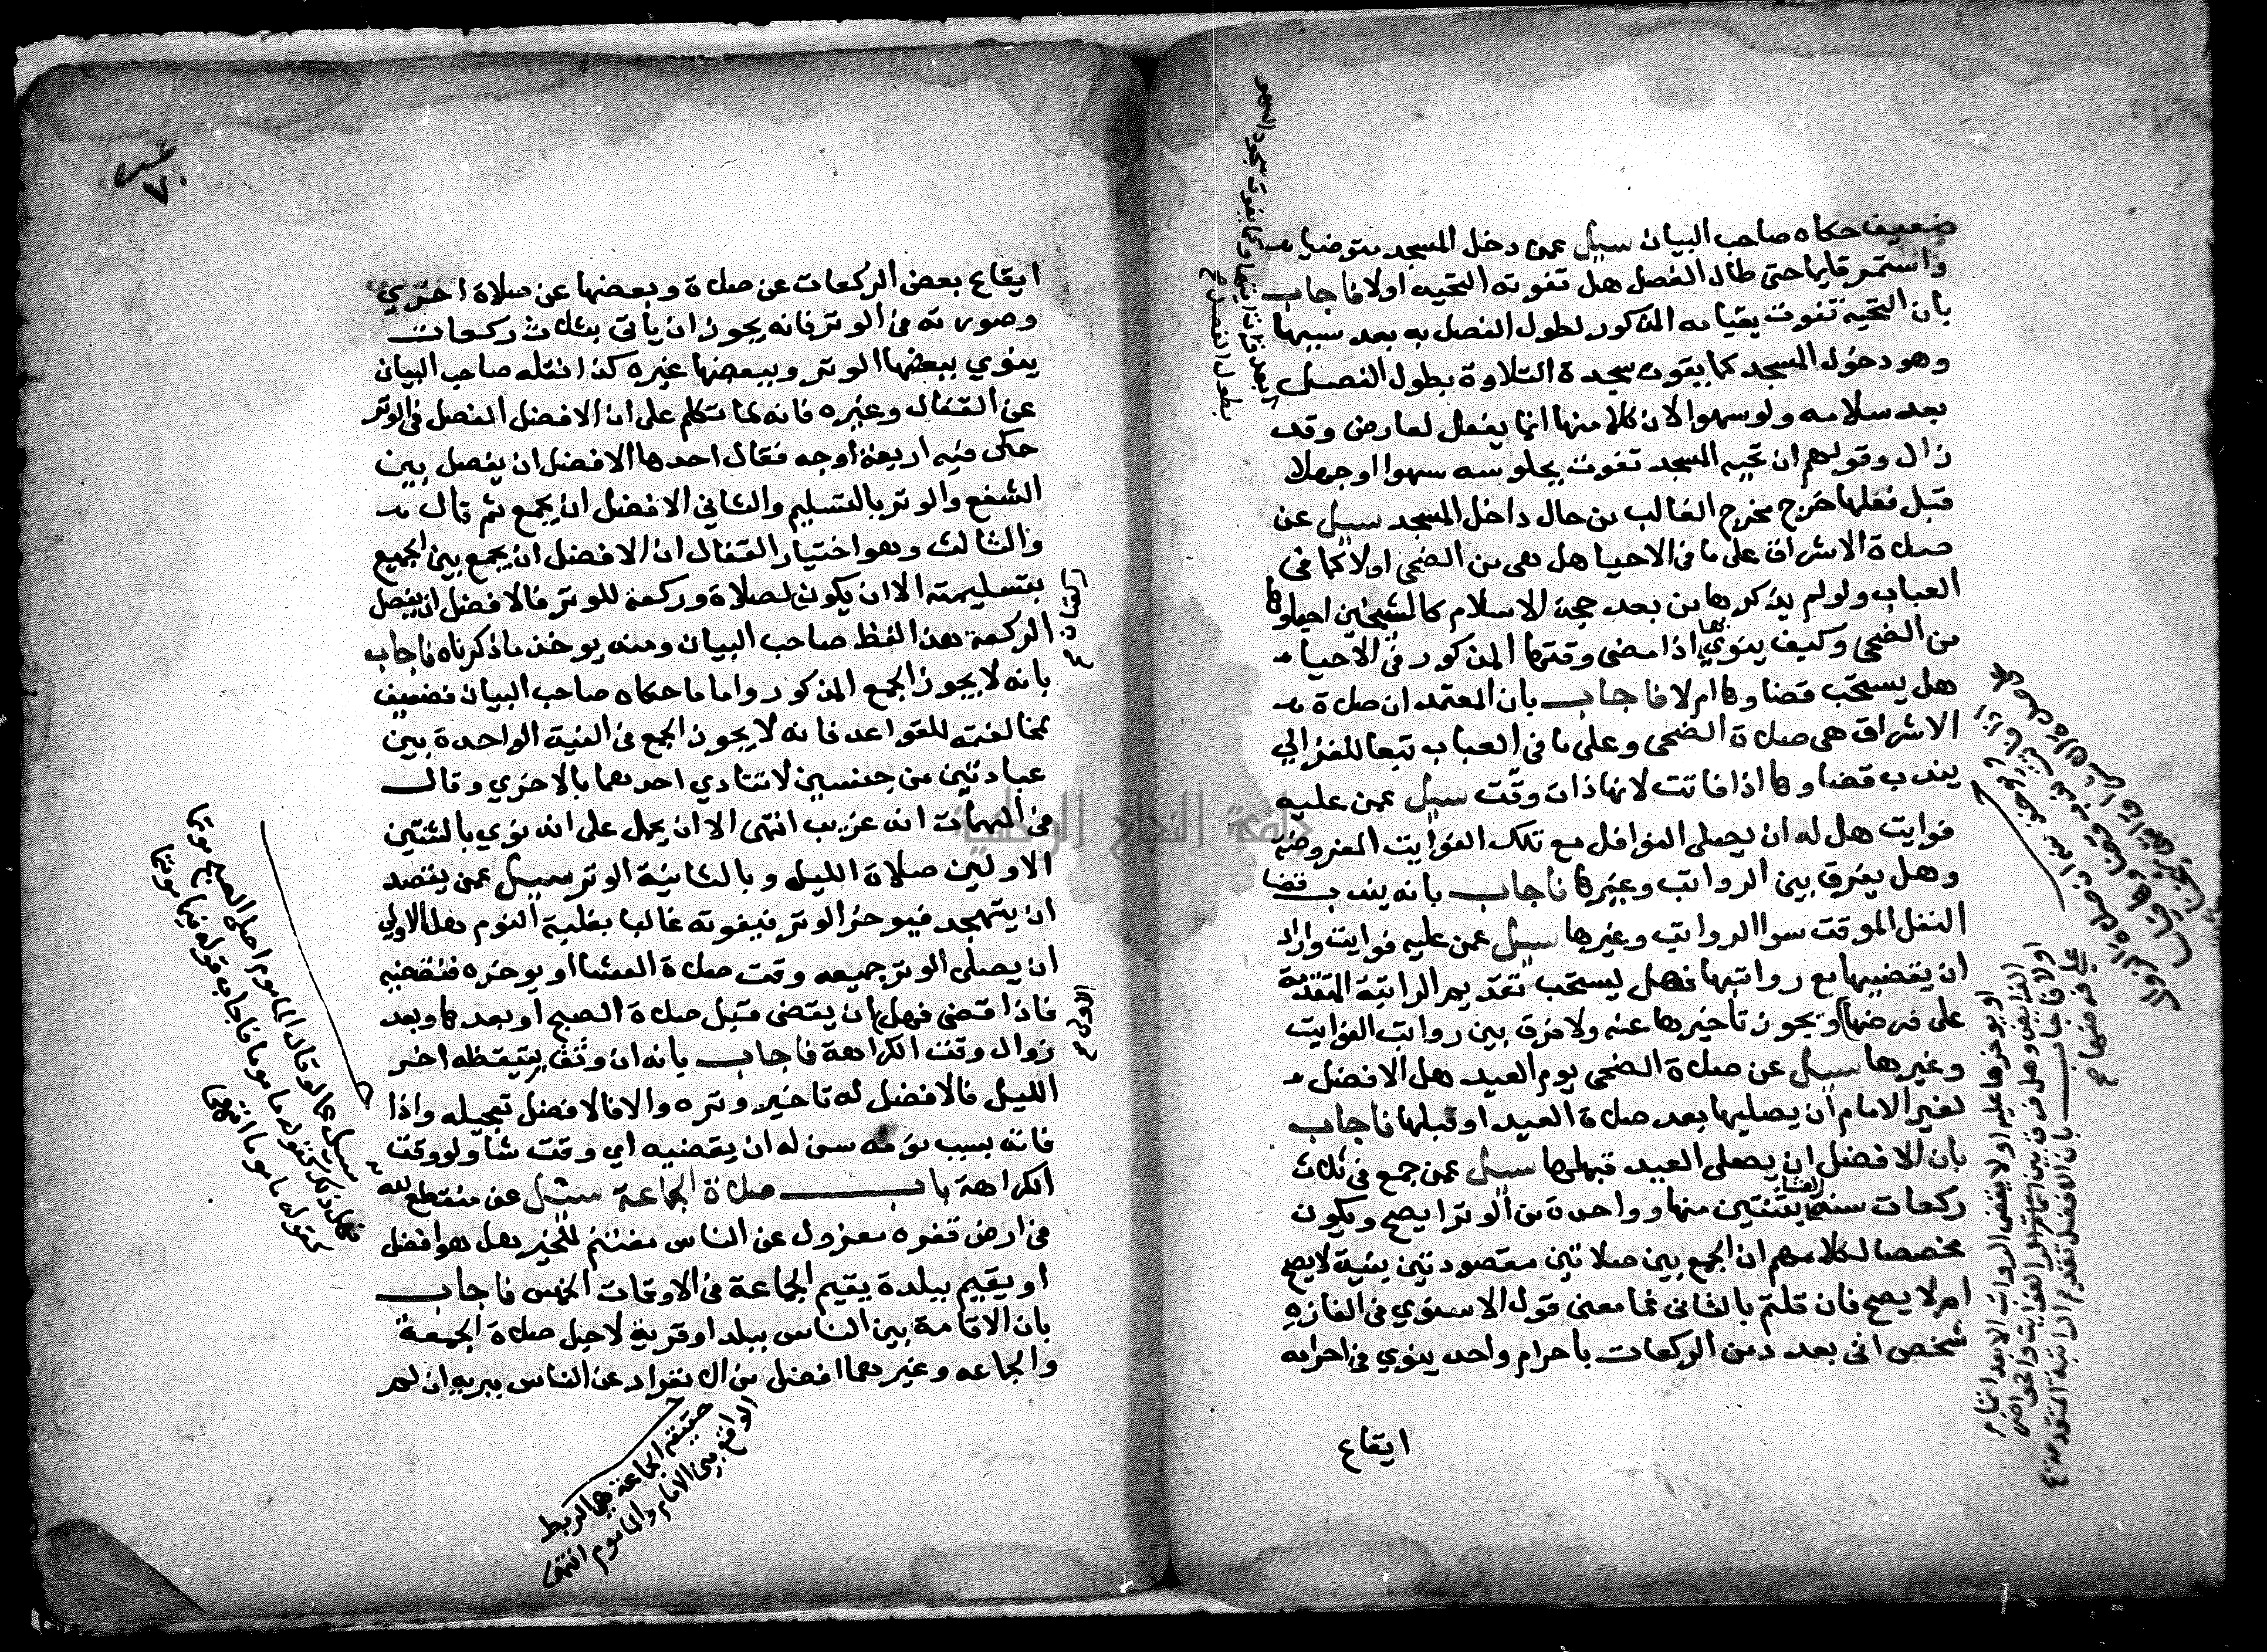 ضعيف حكاه صاحب البيان سيل عمن دخل المسجد متوضيا
واستمر قايما حتى طال الفصل هل تفوته التحيه اولا فاجاب
بان التحية تفوت بقيامه المذكور لطول الفصل به بعد سببها
وهو دخول المسجد كما يفوت سجدة التلاوة بطول الفصل
بعد سلامه ولو سهوا لان كلا منها انما يفعل لعارض وقد
زال وقولهم ان تحيه المسجد تفوت بجلوسه سهوا او جهلا
قبل فعلها خرج مخرج الغالب من حال داخل المسجد سيل عن
صلاة الاشراق على ما فى الاحيا هل هى من الضحى اولا كما فى
العباب ولو لم يذكرها من بعد حجة الاسلام كالشيخين
من الضحى وكيف ينوي بها اذا مضى وقتها المذكور فى الاحيا
هل يستحب قضاوها ام لا فاجاب بان المعتمد ان صلاة
الاشراق هى صلاة الضحى وعلى ما فى العباب تبعا للغزالي
يندب قضاوها اذا فاتت لانها ذات وقت سيل عمن عليه
فوايت هل له ان يصلى النوافل مع تلك الفوايت المفروضة
وهل يفرق بين الرواتب وغيرها فاجاب بانه يندب قضا
النفل الموقت سوا الرواتب وغيرها سيل عمن عليه فوايت واراد
ان يقضيها مع رواتبها فهل يستحب تقديم الراتبة المتقدمة
على فرضها ويجوز تاخيرها عنه ولا فرق بين رواتب الفوايت
وغيرها سيل عن صلاة الضحى يوم العيد هل الافضل
لغير الامام ان يصليها بعد صلاة العيد او قبلها فاجاب
بان الافضل ان يصلى العيد قبلها سيل عمن جمع فى ثلاث
ركعات سنة العشا بثنتين منها وواحدة من الوتر ايصح ويكون
مخصصا لكلامهم ان الجمع بين صلاتين مقصودتين بنية لا يصح
ام لا يصح فان قلتم بالثانى فما معنى قول الاسنوي فى الغازه
شخص اتى بعدد من الركعات باحرام واحد ينوي فى احرامه
ايقاع
ايقاع بعض الركعات عن صلاة وبعضها عن صلاة اخري
وصورته فى الوتر فانه يجوز ان ياتى بثلاث ركعات
ينوي ببعضها الوتر وببعضها غيره كذا نقله صاحب البيان
عن القفال وغيره فانه لما تكلم على ان الافضل الفصل فى الوتر
حكى فيه اربعة اوجه فقال احدها الافضل ان يفصل بين
الشفع والوتر بالتسليم والثاني الافضل ان يجمع ثم قال
والثالث وهو اختيار القفال ان الافضل ان يجمع بين الجميع
بتسليمة الا ان يكون لصلاة وركعة للوتر فالافضل ان يفصل
الركعة هذا لفظ صاحب البيان ومنه يوخذ ما ذكرناه فاجاب
بانه لا يجوز الجمع المذكور واما ما حكاه صاحب البيان فضعيف
لمخالفته للقواعد فانه لا يجوز الجمع فى النية الواحدة بين
عبادتين من جنسين لا تتادي احدهما بالاخري وقال
فى المهمات انه غريب انتهى الا ان يحمل على انه نوي بالثنتين
الاولين صلاة الليل وبالثانية الوتر سيل عمن يقصد
ان يتهجد فيوخر الوتر فيفوته غالبا بغلبة النوم هل الاولي
ان يصلى الوتر جميعه وقت صلاة العشا او يوخره فيقضيه
فاذا قضى فهل ان يقضى قبل صلاة الصبح او بعدها وبعد
زوال وقت الكراهة فاجاب بانه ان وثق بتيقظه اخر
الليل فالافضل له تاخير وتره والا فالافضل تعجيله واذا
فاته بسبب نومه سن له ان يقضيه اي وقت شا ولو وقت
الكراهة باب صلاة الجماعة سئل عن منقطع لله
فى ارض قفره معزول عن الناس مغتنم للخير هل هو افضل
او يقيم ببلدة يقيم الجماعة فى الاوقات الخمس فاجاب
بان الاقامة بين الناس ببلد او قرية لاجل صلاة الجمعة
والجماعه وغيرهما افضل من الانفراد عن الناس ببريه ان لم
حقيقة الجماعة هى الربط
الواقع بين الامام والماموم انتهى